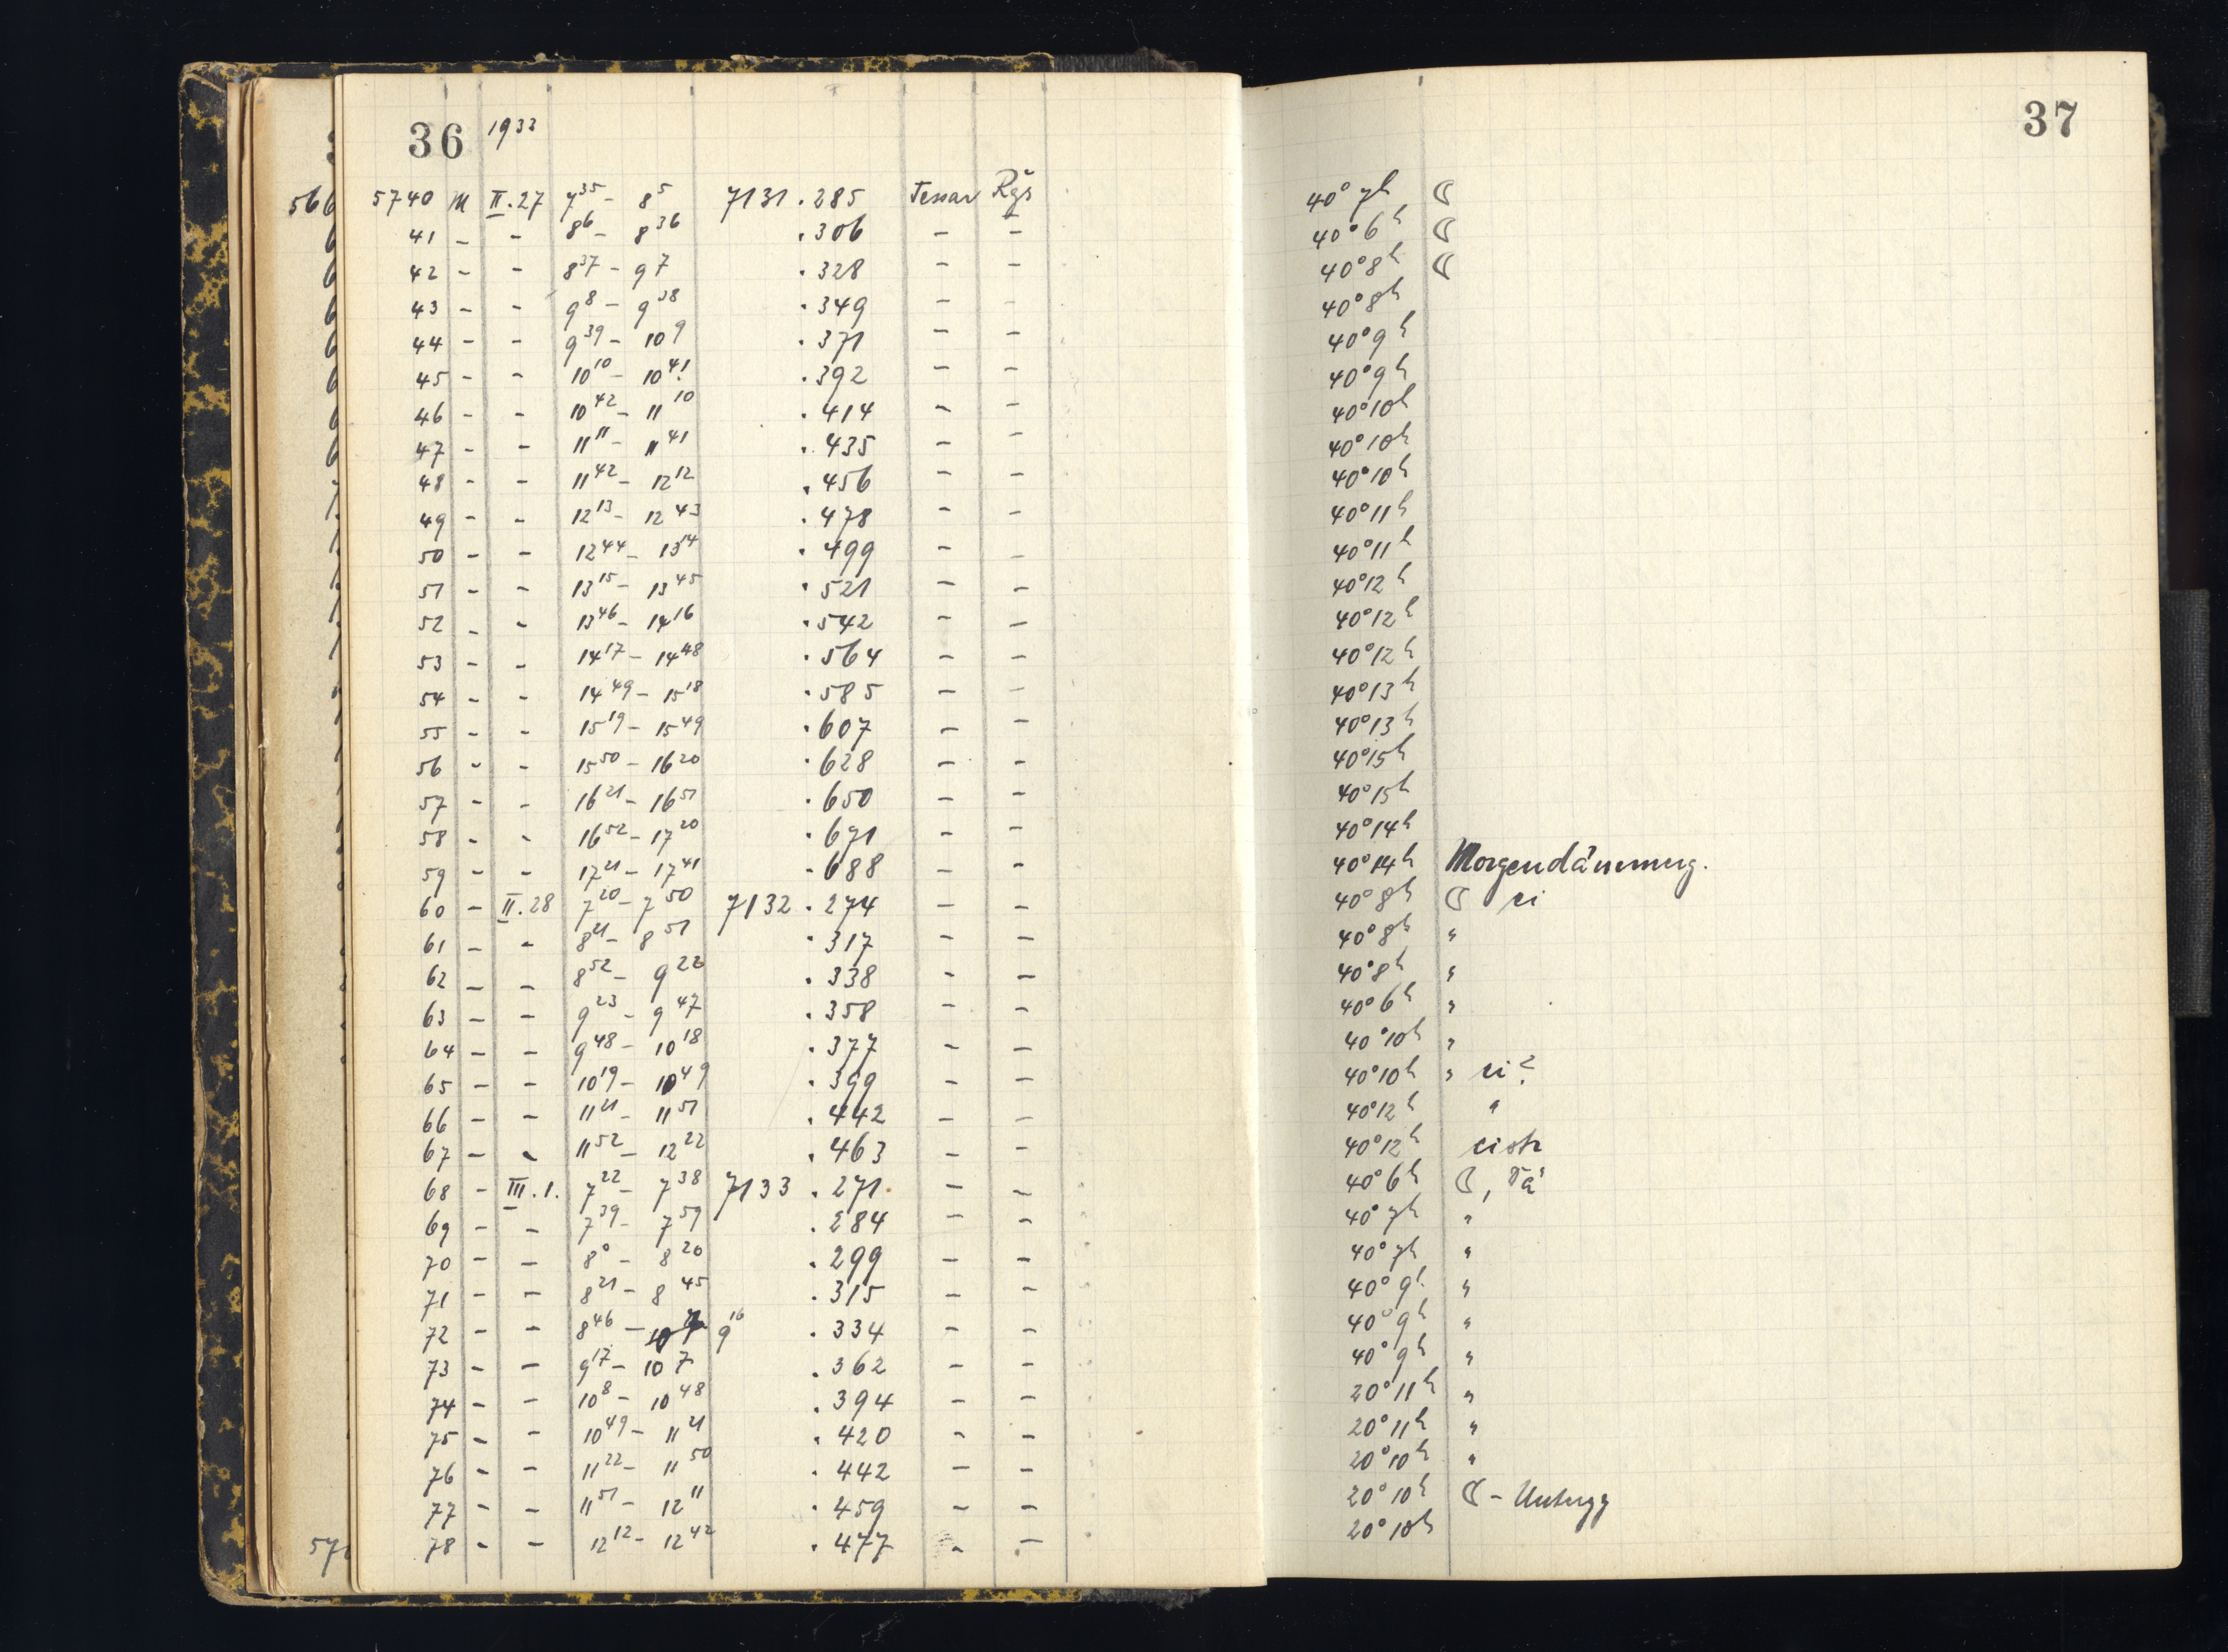 36 1933
37
566 5740 M II.27 7³⁵ – 8⁵ 7131 .285 Tessar Rgs 40° 7h ☾
41 – – 8⁶ – 8³⁶ .306 – – 40° 6h ☾
42 – – 8³⁷ – 9⁷ .328 – – 40° 8h ☾
43 – – 9⁸ – 9³⁸ .349 – – 40° 8h
44 – – 9³⁹ – 10⁹ .371 – – 40° 9h
45 – – 10¹⁰ – 10⁴¹ .392 – – 40° 9h
46 – – 10⁴² – 11¹⁰ .414 – – 40° 10h
47 – – 11¹¹ – 11⁴¹ .435 – – 40° 10h
48 – – 11⁴² – 12¹² .456 – – 40° 10h
49 – – 12¹³ – 12⁴³ .478 – – 40° 11h
50 – – 12⁴⁴ – 13¹⁴ .499 – – 40° 11h
51 – – 13¹⁵ – 13⁴⁵ .521 – – 40° 12h
52 – – 13⁴⁶ – 14¹⁶ .542 – – 40° 12h
53 – – 14¹⁷ – 14⁴⁸ .564 – – 40° 12h
54 – – 14⁴⁹ – 15¹⁸ .585 – – 40° 13h
55 – – 15¹⁹ – 15⁴⁹ .607 – – 40° 13h
56 – – 15⁵⁰ – 16²⁰ .628 – – 40° 15h
57 – – 16²¹ – 16⁵¹ .650 – – 40° 15h
58 – – 16⁵² – 17²⁰ .671 – – 40° 14h
59 – – 17²¹ – 17⁴¹ .688 – – 40° 14h Morgendämmerg.
60 – II.28 7²⁰ – 7⁵⁰ 7132 .274 – – 40° 8h ☾ ci
61 – – 8²¹ – 8⁵¹ .317 – – 40° 8h "
62 – – 8⁵² – 9²² .338 – – 40° 8h "
63 – – 9²³ – 9⁴⁷ .358 – – 40° 6h "
64 – – 9⁴⁸ – 10¹⁸ .377 – – 40° 10h "
65 – – 10¹⁹ – 10⁴⁹ .399 – – 40° 10h " ci?
66 – – 11²¹ – 11⁵¹ .442 – – 40° 12h "
67 – – 11⁵² – 12²² .463 – – 40° 12h cistr
68 – III.1. 7²² – 7³⁸ 7133 .271 – – 40° 6h ☾, Tä
69 – – 7³⁹ – 7⁵⁹ .284 – – 40° 7h "
70 – – 8⁰ – 8²⁰ .299 – – 40° 7h "
71 – – 8²¹ – 8⁴⁵ .315 – – 40° 9h "
72 – – 8⁴⁶ – 9¹⁶ .334 – – 40° 9h "
73 – – 9¹⁷ – 10⁷ .362 – – 40° 9h "
74 – – 10⁸ – 10⁴⁸ .394 – – 20° 11h "
75 – – 10⁴⁹ – 11²¹ .420 – – 20° 11h "
76 – – 11²² – 11⁵⁰ .442 – – 20° 10h "
77 – – 11⁵¹ – 12¹¹ .459 – – 20° 10h ☾ – Untergg
78 – – 12¹² – 12⁴² .477 – – 20° 10h